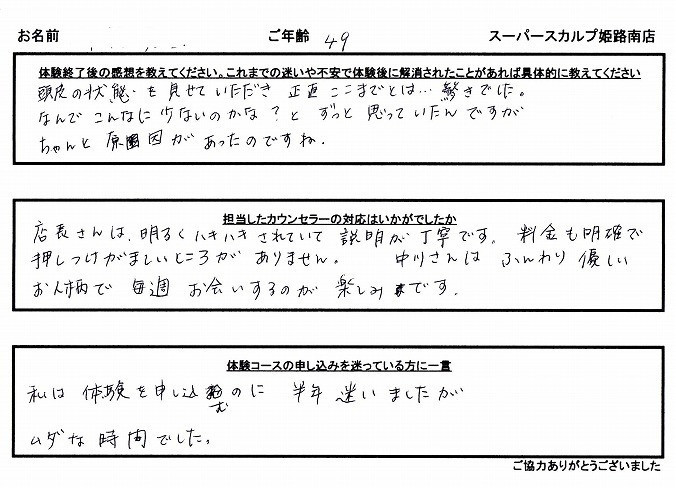 お名前 ご年齢 49 スーパースカルプ姫路南店
体験終了後の感想を教えてください。これまでの迷いや不安で体験後に解消されたことがあれば具体的に教えてください
頭皮の状態を見せていただき 正直ここまでとは…驚きでした。
なんでこんなに少ないのかな?と ずっと思っていたんですが
ちゃんと原因があったのですね.
担当したカウンセラーの対応はいかがでしたか
店長さんは、明るくハキハキされていて 説明が丁寧です。 料金も明確で
押しつけがましいところがありません。 中川さんは ふんわり優しい
お人柄で 毎週 お会いするのが 楽しみです.
体験コースの申し込みを迷っている方に一言
私は 体験を申し込むのに 半年 迷いましたが
ムダな時間でした。
ご協力ありがとうございました